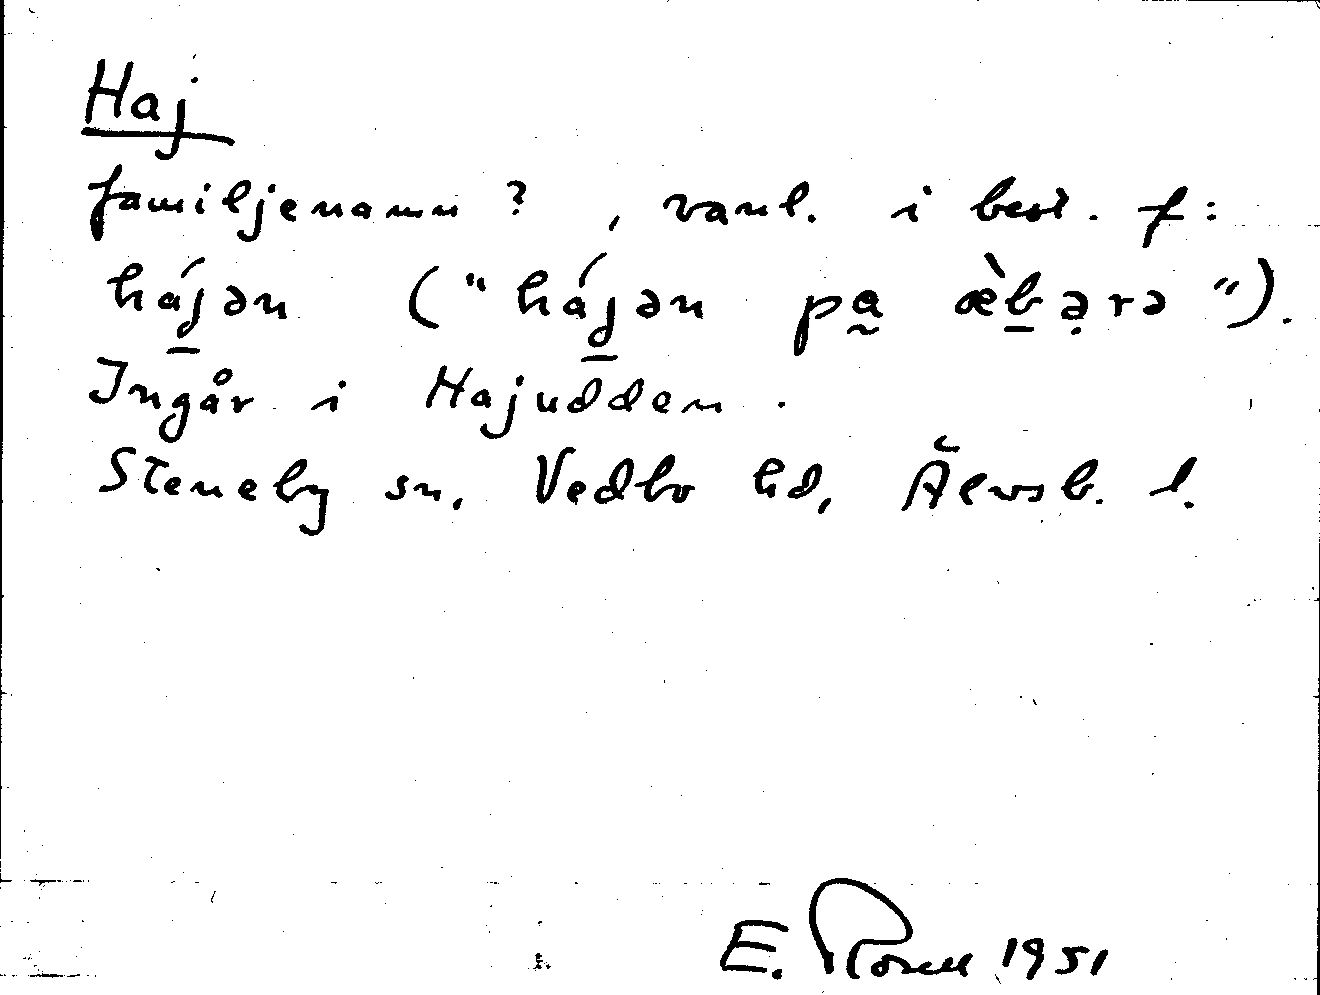 Haj
familjenamn ? , vanl. i best. f:
hájən ("hájən pa æ̀bərə").
Ingår i Hajudden.
Steneby sn, Vedbo hd, Älvsb. l.
E. Rosell 1951